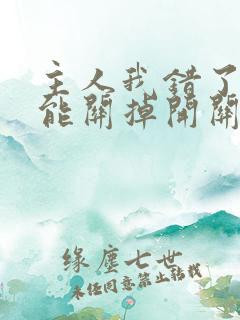 主人我錯了
能關掉開關
缘塵七世
未经同意禁止转载